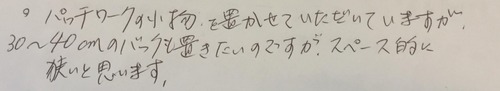 。パッチワークの小物を置かせていただいていますが、
30〜40cmのバックも置きたいのですが、スペース的に
狭いと思います。